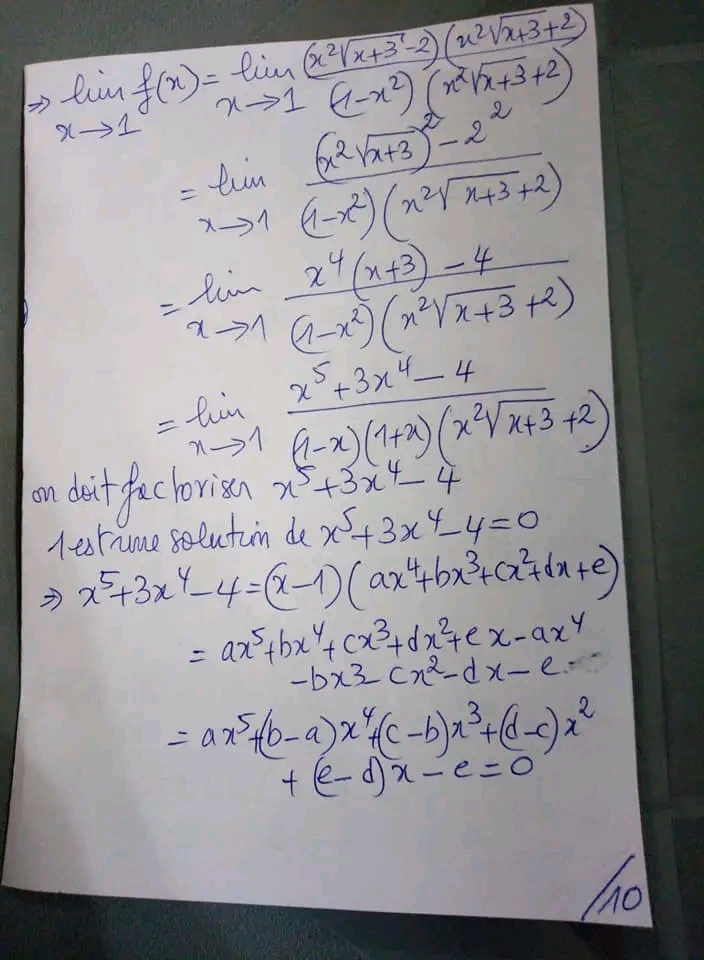 ⇒ lim f(x) = lim (x²√(x+3) -2)(x²√(x+3) +2) / (1-x²)(x²√(x+3) +2)
x→1 x→1
= lim (x²√(x+3))² - 2² / (1-x²)(x²√(x+3) +2)
x→1
= lim x⁴(x+3) - 4 / (1-x²)(x²√(x+3) +2)
x→1
= lim x⁵ + 3x⁴ - 4 / (1-x)(1+x)(x²√(x+3) +2)
x→1
on doit factoriser x⁵ + 3x⁴ - 4
1 est une solution de x⁵ + 3x⁴ - 4 = 0
⇒ x⁵ + 3x⁴ - 4 = (x-1)(ax⁴+bx³+cx²+dx+e)
= ax⁵+bx⁴+cx³+dx²+ex-ax⁴
-bx3-cx²-dx-e
= ax⁵+(b-a)x⁴+(c-b)x³+(d-c)x²
+(e-d)x-e=0
/10